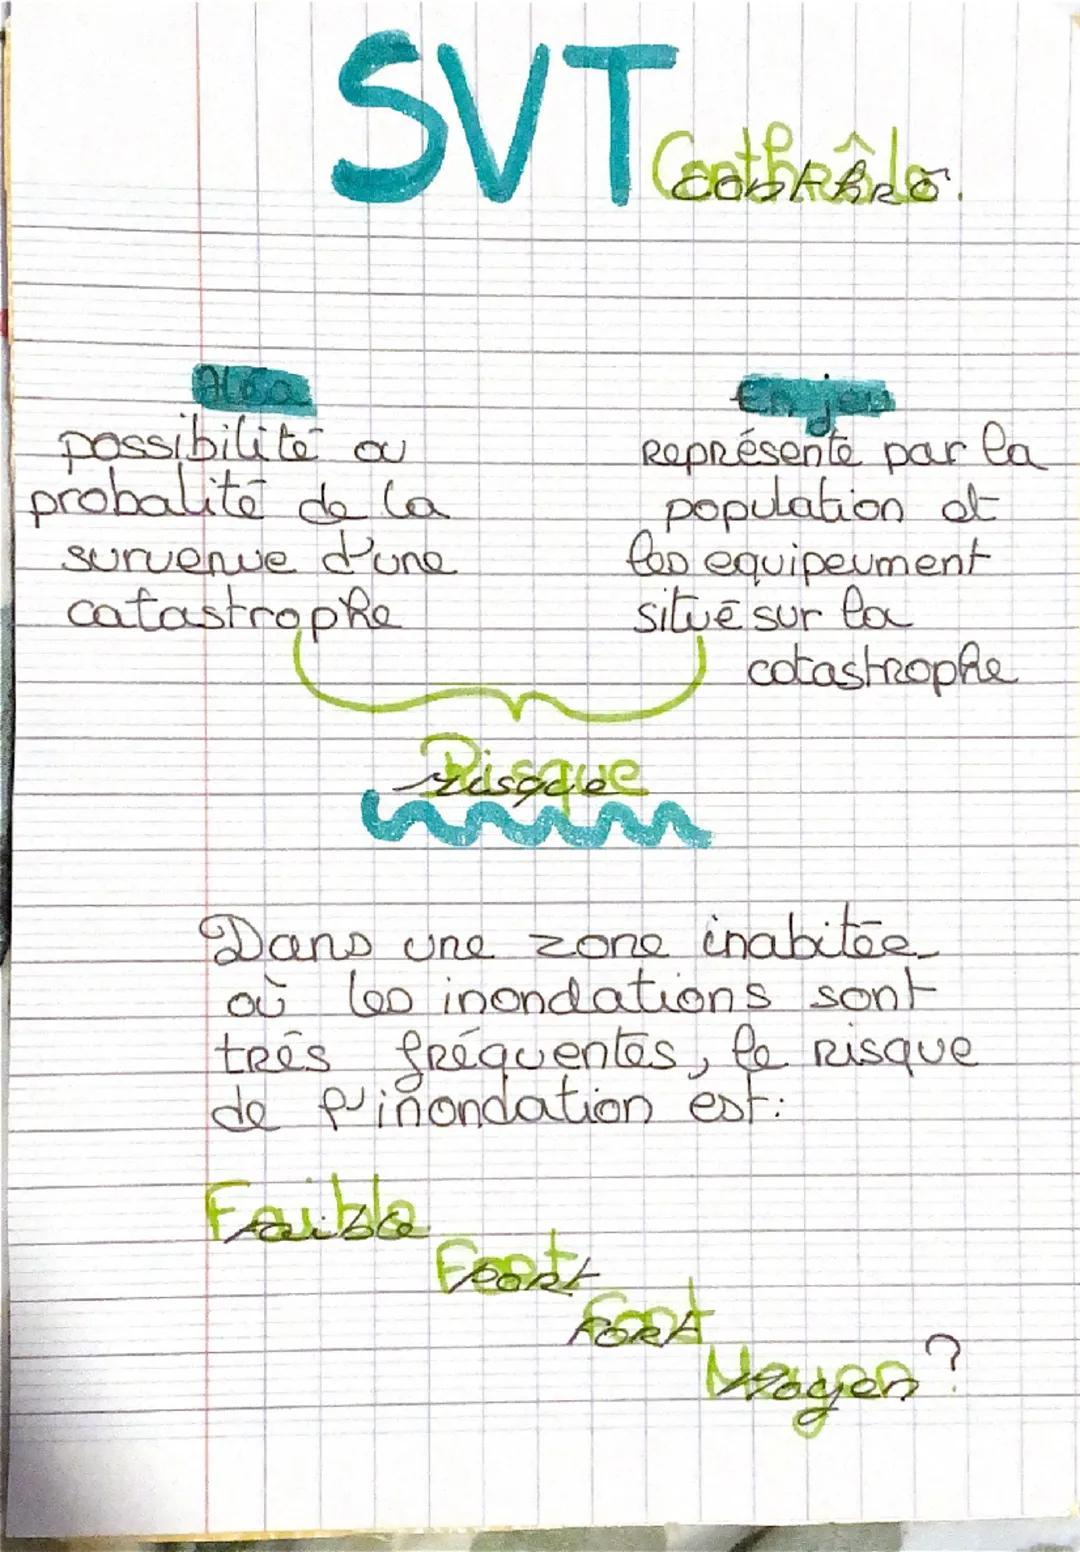 SVT Contrôle
Aléa
possibilité ou
probalité de la
survenue d'une
catastrophe
Enjeu
Représenté par la
population et
les equipeument
situé sur la
catastrophe
Risque
Dans une zone inabitée
où les inondations sont
très fréquentes, le risque
de l'inondation est:
Faible
Fort
Fort
Moyen ?